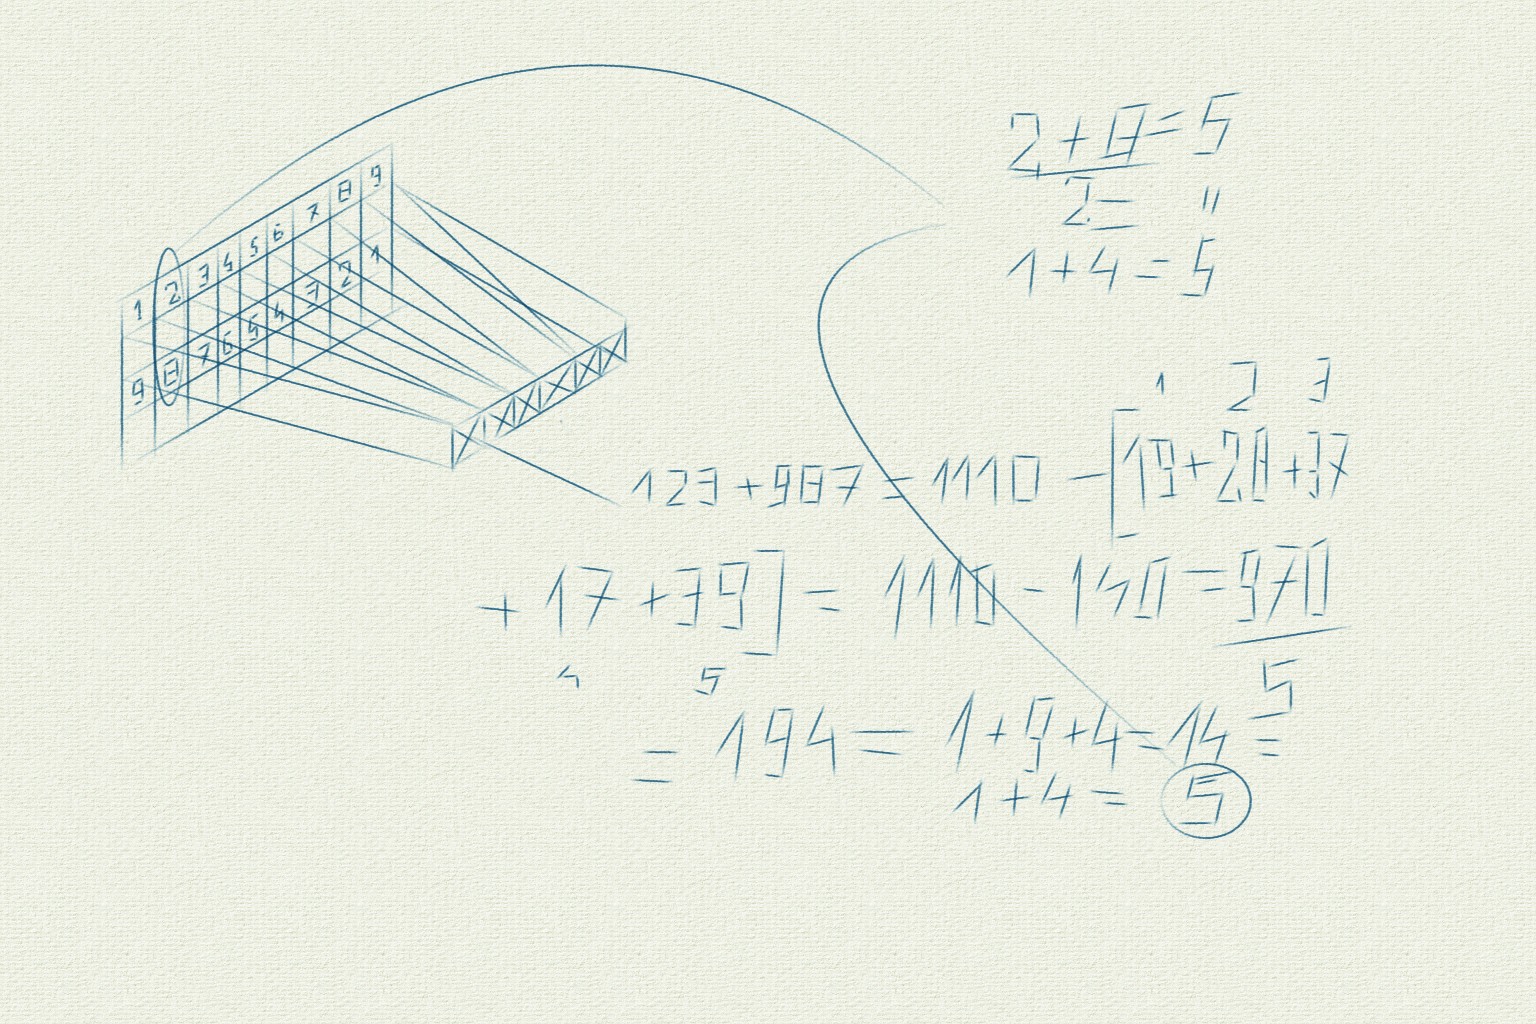 1 2 3 4 5 6 7 8 9
9 8 7 6 5 4 3 2 1
2+8=5
2= "
1+4=5
1 2 3
123+987=1110-[19+28+37
+17+39]=1110-140=970
4 5 5
=194=1+9+4=14=
1+4=5